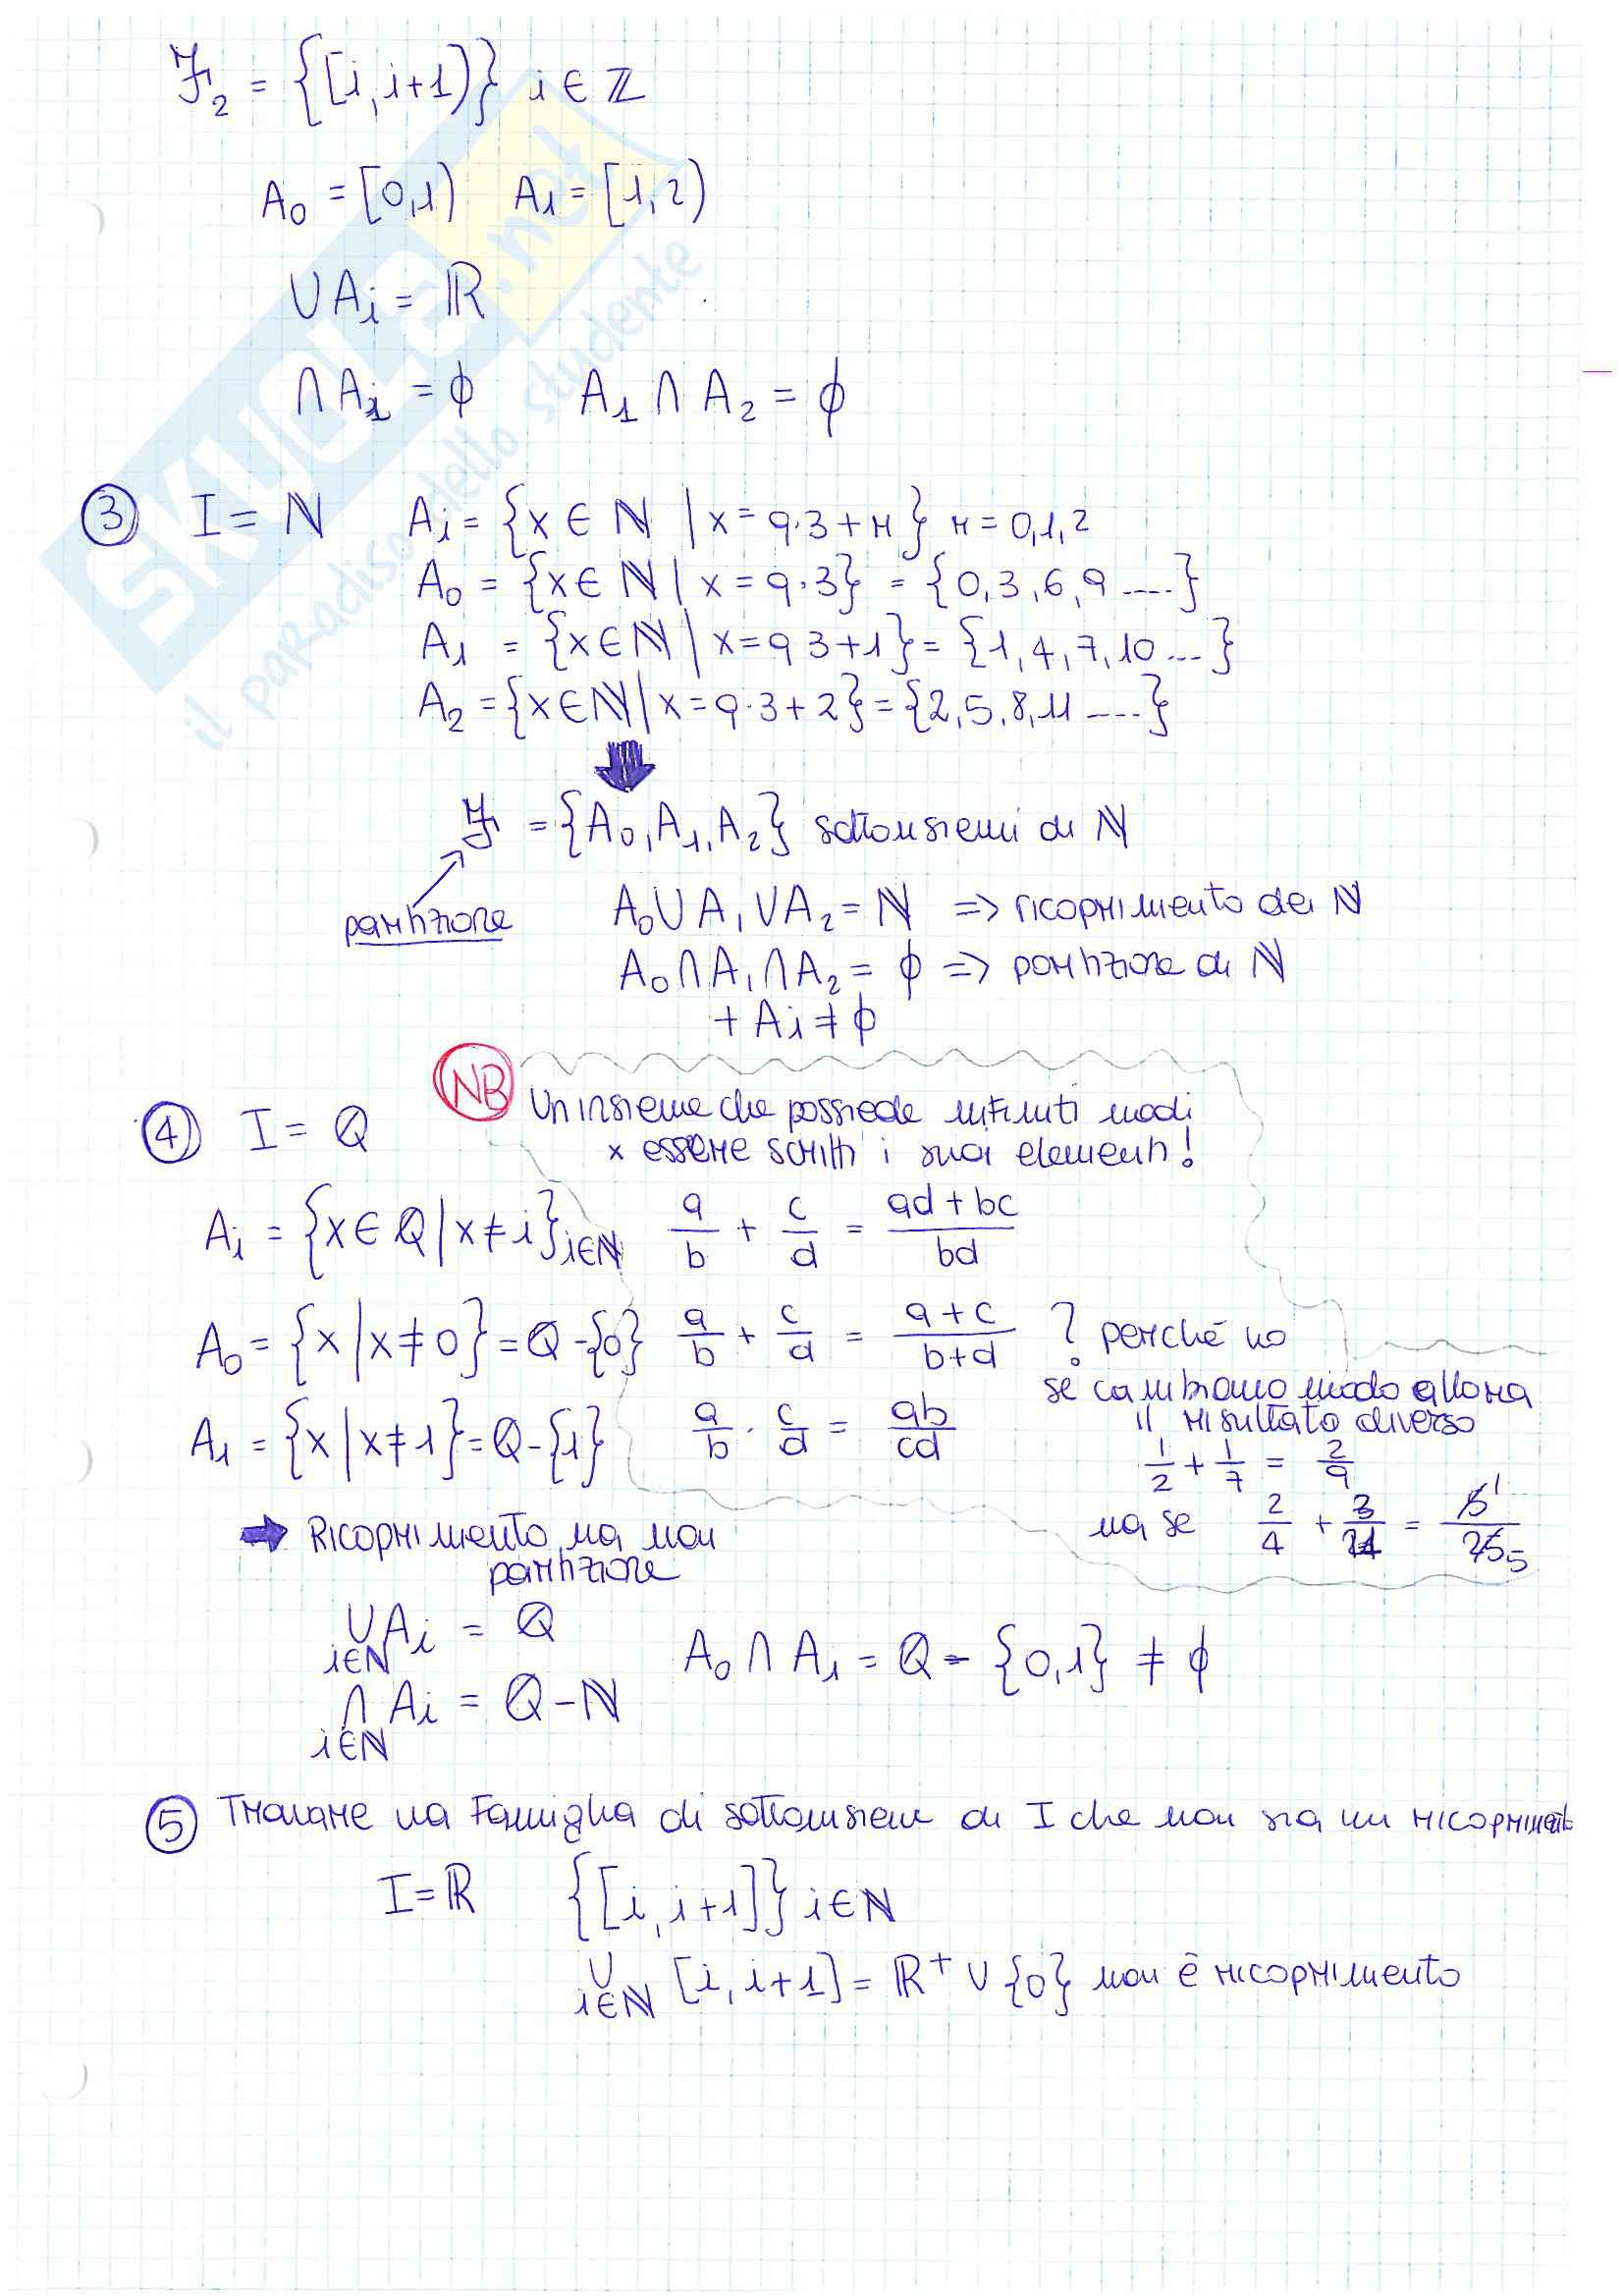 ℱ₂ = {[i, i+1)} i ∈ ℤ
A₀ = [0,1) A₁ = [1,2)
∪Aᵢ = ℝ
∩Aᵢ = ϕ A₁ ∩ A₂ = ϕ
③ I = ℕ Aᵢ = {x ∈ ℕ | x = q·3 + r} r = 0,1,2
A₀ = {x ∈ ℕ | x = q·3} = {0, 3, 6, 9 ....}
A₁ = {x ∈ ℕ | x = q 3+1} = {1, 4, 7, 10 ...}
A₂ = {x ∈ ℕ | x = q·3+2} = {2, 5, 8, 11 ....}
ℱ = {A₀, A₁, A₂} sottoinsiemi di ℕ
partizione
A₀ ∪ A₁ ∪ A₂ = ℕ => ricoprimento dei ℕ
A₀ ∩ A₁ ∩ A₂ = ϕ => partizione di ℕ
+ Aᵢ ≠ ϕ
NB
④ I = ℚ
Un insieme che possiede infiniti modi
x essere scritti i suoi elementi!
Aᵢ = {x ∈ ℚ | x ≠ i} i∈ℕ a/b + c/d = ad + bc / bd
A₀ = {x | x ≠ 0} = ℚ - {0} a/b + c/d = a + c / b + d ? perché no
se cambiamo modo allora
il risultato diverso
A₁ = {x | x ≠ 1} = ℚ - {1} a/b · c/d = ab/cd
1/2 + 1/7 = 2/9
ma se 2/4 + 3/21 = 5 1 / 25 5
Ricoprimento ma non
partizione
∪ Aᵢ = ℚ
i∈ℕ
A₀ ∩ A₁ = ℚ - {0,1} ≠ ϕ
∩ Aᵢ = ℚ - ℕ
i∈ℕ
⑤ Trovare una Famiglia di sottoinsiemi di I che non sia un ricoprimento
I = ℝ {[i, i+1]} i∈ℕ
∪ [i, i+1] = ℝ⁺ ∪ {0} non è ricoprimento
i∈ℕ
SKUOLA.net
il paradiso dello studente